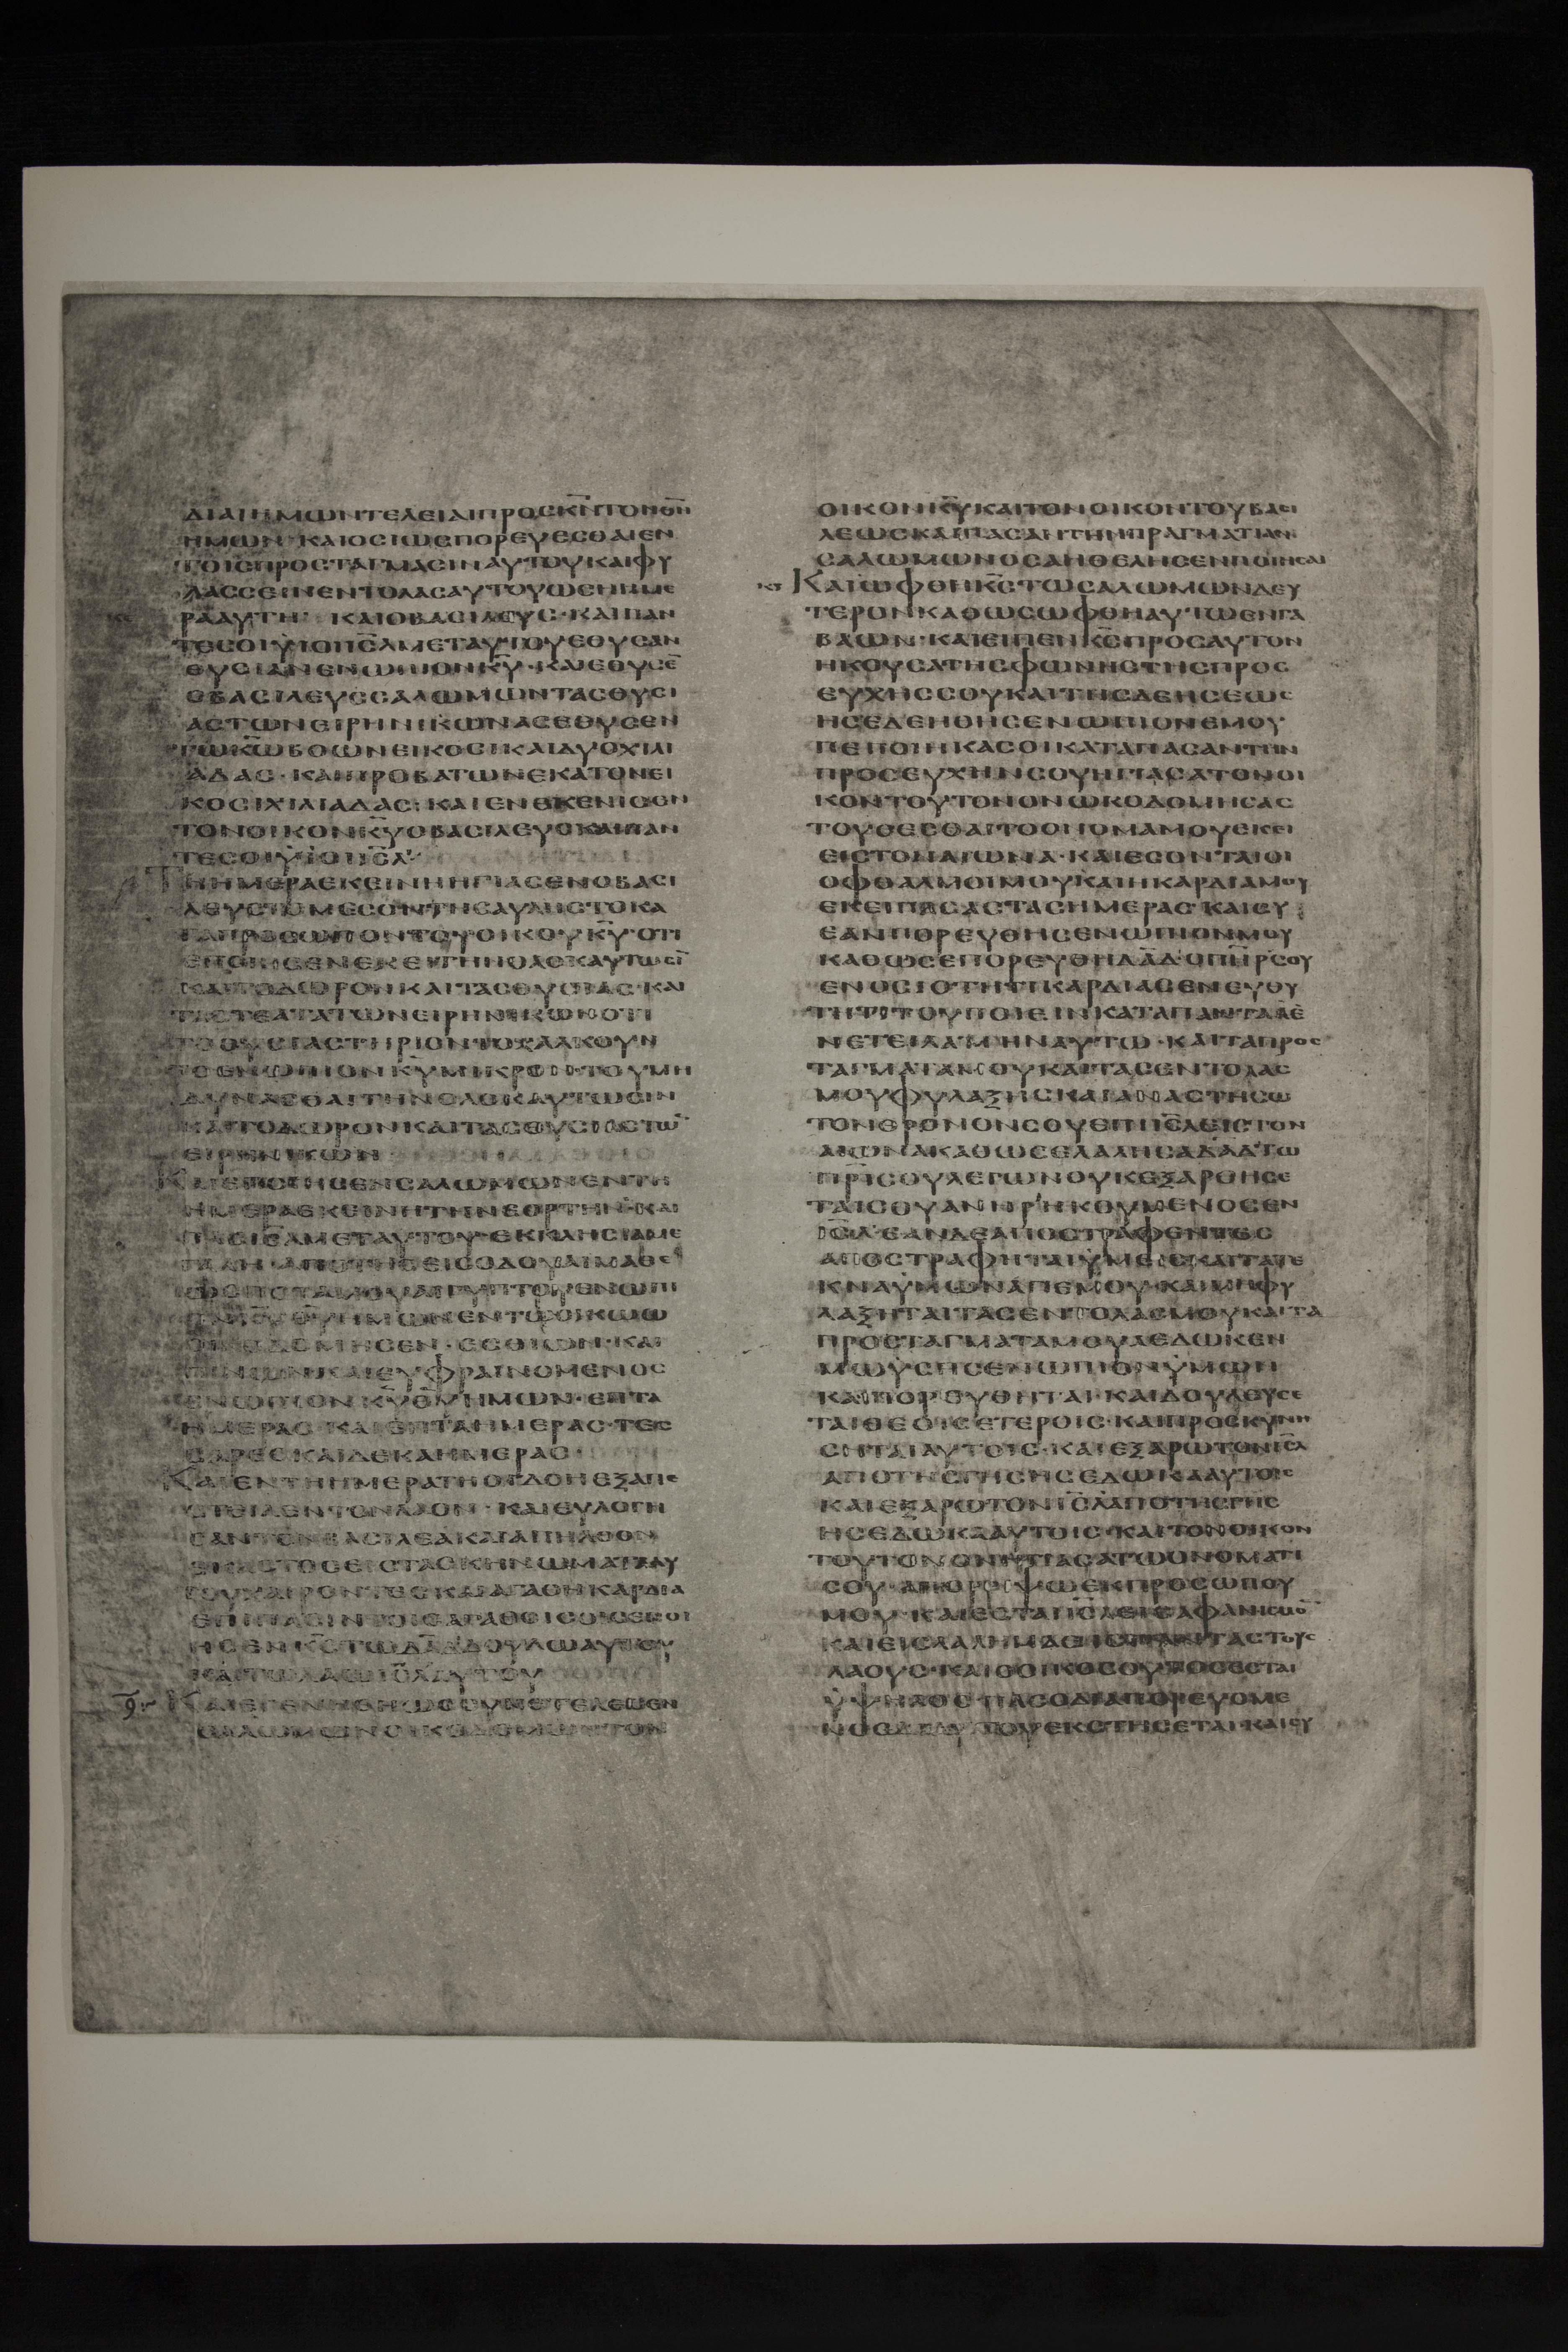 ΔΙΑΙΗΜΩΝΤΕΛΕΙΑΙΠΡΟΣΚΝΤΟΝΘΝ
ΗΜΩΝ·ΚΑΙΟΣΙΩΣΠΟΡΕΥΕΣΘΑΙΕΝ
ΤΟΙΣΠΡΟΣΤΑΓΜΑΣΙΝΑΥΤΟΥΚΑΙΦΥ
ΛΑΣΣΕΙΝΕΝΤΟΛΑΣΑΥΤΟΥΩΣΗΗΜΕ
ΡΑΑΥΤΗ ΚΑΙΟΒΑΣΙΛΕΥΣ·ΚΑΙΠΑΝ
ΤΕΣΟΙΥΙΟΙΙΣΛΜΕΤΑΥΤΟΥΕΘΥΣΑΝ
ΘΥΣΙΑΝΕΝΩΠΙΟΝΚΥ·ΚΑΙΕΘΥΣΕ
ΟΒΑΣΙΛΕΥΣΣΑΛΩΜΩΝΤΑΣΘΥΣΙ
ΑΣΤΩΝΕΙΡΗΝΙΚΩΝΑΣΕΘΥΣΕΝ
ΤΩΚΩΒΟΩΝΕΙΚΟΣΙΚΑΙΔΥΟΧΙΛΙ
ΑΔΑΣ·ΚΑΙΠΡΟΒΑΤΩΝΕΚΑΤΟΝΕΙ
ΚΟΣΙΧΙΛΙΑΔΑΣ·ΚΑΙΕΝΕΚΕΝΙΣΕΝ
ΤΟΝΟΙΚΟΝΚΥΟΒΑΣΙΛΕΥΣΚΑΙΠΑΝ
ΤΕΣΟΙΥΙΟΙΙΣΛ
ΤΗΗΜΕΡΑΕΚΕΙΝΗΗΓΙΑΣΕΝΟΒΑΣΙ
ΛΕΥΣΤΟΜΕΣΟΝΤΗΣΑΥΛΗΣΤΟΚΑ
ΤΑΠΡΟΣΩΠΟΝΤΟΥΟΙΚΟΥΚΥ·ΟΤΙ
ΕΠΟΙΗΣΕΝΕΚΕΙΤΗΝΟΛΟΚΑΥΤΩΣΙ
ΚΑΙΤΟΔΩΡΟΝΚΑΙΤΑΣΘΥΣΙΑΣ·ΚΑΙ
ΤΑΣΤΕΑΤΑΤΩΝΕΙΡΗΝΙΚΩΝΟΤΙ
ΤΟΘΥΣΙΑΣΤΗΡΙΟΝΤΟΧΑΛΚΟΥΝ
ΤΟΕΝΩΠΙΟΝΚΥΜΙΚΡΟΝ·ΤΟΥΜΗ
ΔΥΝΑΣΘΑΙΤΗΝΟΛΟΚΑΥΤΩΣΙΝ
ΚΑΙΤΟΔΩΡΟΝΚΑΙΤΑΣΘΥΣΙΑΣΤΩ
ΕΙΡΗΝΙΚΩΝ
ΚΑΙΕΠΟΙΗΣΕΝΣΑΛΩΜΩΝΕΝΤΗ
ΗΜΕΡΑΕΚΕΙΝΗΤΗΝΕΟΡΤΗΝ·ΚΑΙ
ΠΑΣΙΣΛΜΕΤΑΥΤΟΥ·ΕΚΚΛΗΣΙΑΜΕ
ΓΑΛΗ·ΑΠΟΤΗΣΕΙΣΟΔΟΥΑΙΜΑΘΕ
ΕΩΣΠΟΤΑΜΟΥΑΙΓΥΠΤΟΥΕΝΩΠΙ
ΟΝΚΥΘΥΗΜΩΝΕΝΤΩΟΙΚΩΩ
ΩΚΟΔΟΜΗΣΕΝ·ΕΣΘΙΩΝ·ΚΑΙ
ΠΙΝΩΝΚΑΙΕΥΦΡΑΙΝΟΜΕΝΟΣ
ΕΝΩΠΙΟΝΚΥΘΥΗΜΩΝ·ΕΠΤΑ
ΗΜΕΡΑΣ·ΚΑΙΕΠΤΑΗΜΕΡΑΣ·ΤΕΣ
ΣΑΡΕΣΚΑΙΔΕΚΑΗΜΕΡΑΣ·
ΚΑΙΕΝΤΗΗΜΕΡΑΤΗΟΓΔΟΗΕΞΑΠΕ
ΣΤΕΙΛΕΝΤΟΝΛΑΟΝ·ΚΑΙΕΥΛΟΓΗ
ΣΑΝΤΟΝΒΑΣΙΛΕΑΚΑΙΑΠΗΛΘΟΝ
ΕΚΑΣΤΟΣΕΙΣΤΑΣΚΗΝΩΜΑΤΑΑΥ
ΤΟΥΧΑΙΡΟΝΤΕΣΚΑΙΑΓΑΘΗΚΑΡΔΙΑ
ΕΠΙΠΑΣΙΝΤΟΙΣΑΓΑΘΟΙΣΟΙΣΕΠΟΙ
ΗΣΕΝΚΣΤΩΔΑΔΔΟΥΛΩΑΥΤΟΥ
ΚΑΙΤΩΛΑΩΙΣΛΑΥΤΟΥ
ΚΑΙΕΓΕΝΗΘΗΩΣΣΥΝΕΤΕΛΕΣΕΝ
ΣΑΛΩΜΩΝΟΙΚΟΔΟΜΩΝΤΟΝ
ΟΙΚΟΝΚΥΚΑΙΤΟΝΟΙΚΟΝΤΟΥΒΑΣΙ
ΛΕΩΣΚΑΙΠΑΣΑΝΤΗΝΠΡΑΓΜΑΤΙΑΝ
ΣΑΛΩΜΩΝΟΣΑΗΘΕΛΗΣΕΝΠΟΙΗΣΑΙ
ΚΑΙΩΦΘΗΚΣΤΩΣΑΛΩΜΩΝΔΕΥ
ΤΕΡΟΝΚΑΘΩΣΩΦΘΗΑΥΤΩΕΝΓΑ
ΒΑΩΝ·ΚΑΙΕΙΠΕΝΚΣΠΡΟΣΑΥΤΟΝ
ΗΚΟΥΣΑΤΗΣΦΩΝΗΣΤΗΣΠΡΟΣ
ΕΥΧΗΣΣΟΥΚΑΙΤΗΣΔΕΗΣΕΩΣ
ΗΣΕΔΕΗΘΗΣΕΝΩΠΙΟΝΕΜΟΥ
ΠΕΠΟΙΗΚΑΣΟΙΚΑΤΑΠΑΣΑΝΤΗΝ
ΠΡΟΣΕΥΧΗΝΣΟΥΗΓΙΑΣΑΤΟΝΟΙ
ΚΟΝΤΟΥΤΟΝΟΝΩΚΟΔΟΜΗΣΑΣ
ΤΟΥΘΕΣΘΑΙΤΟΟΝΟΜΑΜΟΥΕΚΕΙ
ΕΙΣΤΟΝΑΙΩΝΑ·ΚΑΙΕΣΟΝΤΑΙΟΙ
ΟΦΘΑΛΜΟΙΜΟΥΚΑΙΗΚΑΡΔΙΑΜΟΥ
ΕΚΕΙΠΑΣΑΣΤΑΣΗΜΕΡΑΣ·ΚΑΙΣΥ
ΕΑΝΠΟΡΕΥΘΗΣΕΝΩΠΙΟΝΜΟΥ
ΚΑΘΩΣΕΠΟΡΕΥΘΗΔΑΔ·ΟΠΗΡΣΟΥ
ΕΝΟΣΙΟΤΗΤΙΚΑΡΔΙΑΣΕΝΕΥΘΥ
ΤΗΤΙΤΟΥΠΟΙΕΙΝΚΑΤΑΠΑΝΤΑΑΕ
ΝΕΤΕΙΛΑΜΗΝΑΥΤΩ·ΚΑΙΤΑΠΡΟΣ
ΤΑΓΜΑΤΑΜΟΥΚΑΙΤΑΣΕΝΤΟΛΑΣ
ΜΟΥΦΥΛΑΞΗΣΚΑΙΑΝΑΣΤΗΣΩ
ΤΟΝΘΡΟΝΟΝΣΟΥΕΠΙΙΣΛΕΙΣΤΟΝ
ΑΙΩΝΑΚΑΘΩΣΕΛΑΛΗΣΑΔΑΔΤΩ
ΠΡΙΣΟΥΛΕΓΩΝΟΥΚΕΞΑΡΘΗΣΕ
ΤΑΙΣΟΥΑΝΗΡΗΓΟΥΜΕΝΟΣΕΝ
ΙΣΛ·ΕΑΝΔΕΑΠΟΣΤΡΑΦΕΝΤΕΣ
ΑΠΟΣΤΡΑΦΗΤΑΙΥΜΕΙΣΚΑΙΤΑΤΕ
ΚΝΑΥΜΩΝΑΠΕΜΟΥ·ΚΑΙΜΗΦΥ
ΛΑΞΗΤΑΙΤΑΣΕΝΤΟΛΑΣΜΟΥΚΑΙΤΑ
ΠΡΟΣΤΑΓΜΑΤΑΜΟΥΑΕΔΩΚΕΝ
ΜΩΥΣΗΣΕΝΩΠΙΟΝΥΜΩΝ
ΚΑΙΠΟΡΕΥΘΗΤΑΙ·ΚΑΙΔΟΥΛΕΥΣΕ
ΤΑΙΘΕΟΙΣΕΤΕΡΟΙΣ·ΚΑΙΠΡΟΣΚΥΝΗ
ΣΗΤΑΙΑΥΤΟΙΣ·ΚΑΙΕΞΑΡΩΤΟΝΙΣΛ
ΑΠΟΤΗΣΓΗΣΗΣΕΔΩΚΑΑΥΤΟΙΣ
ΚΑΙΕΞΑΡΩΤΟΝΙΣΛΑΠΟΤΗΣΓΗΣ
ΗΣΕΔΩΚΑΑΥΤΟΙΣ·ΚΑΙΤΟΝΟΙΚΟΝ
ΤΟΥΤΟΝΟΝΗΓΙΑΣΑΤΩΟΝΟΜΑΤΙ
ΣΟΥ·ΑΠΟΡΡΙΨΩΕΚΠΡΟΣΩΠΟΥ
ΜΟΥ·ΚΑΙΕΣΤΑΙΙΣΛΕΙΣΑΦΑΝΙΣΜΟ
ΚΑΙΕΙΣΛΑΛΗΜΑΕΙΣΠΑΝΤΑΣΤΟΥΣ
ΛΑΟΥΣ·ΚΑΙΟΟΙΚΟΣΟΥΤΟΣΕΣΤΑΙ
ΥΨΗΛΟΣ·ΠΑΣΟΔΙΑΠΟΡΕΥΟΜΕ
ΝΟΣΔΙΑΥΤΟΥΕΚΣΤΗΣΕΤΑΙ·ΚΑΙΣΥ